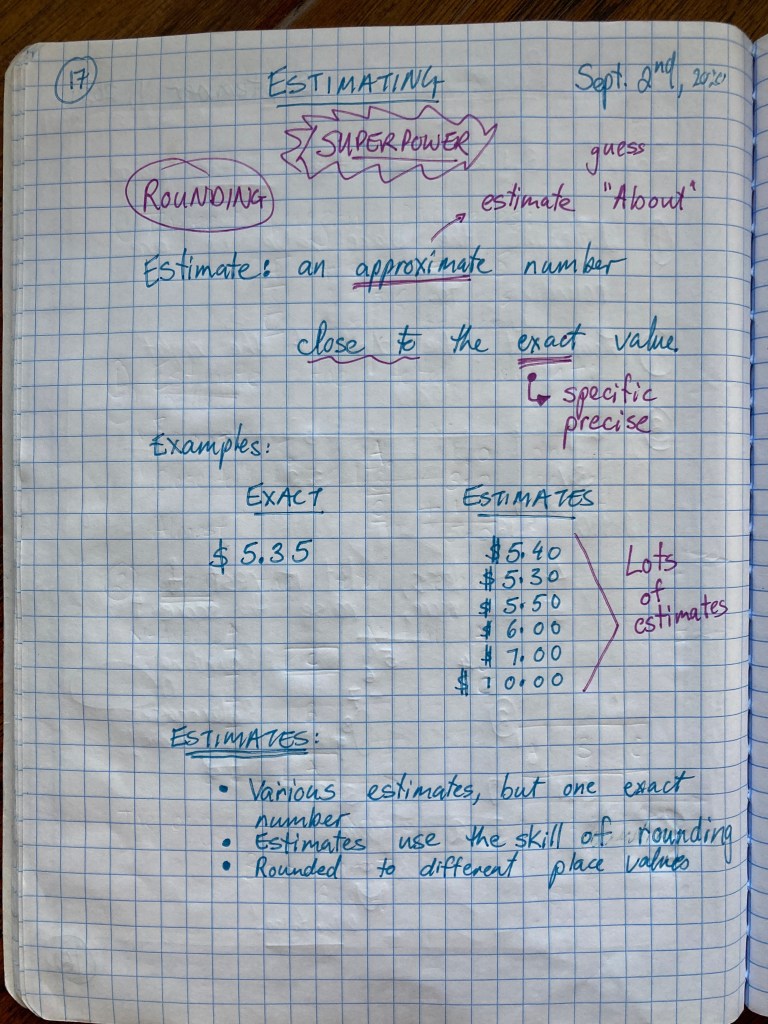 17
ESTIMATING
Sept. 2nd, 2020
SUPERPOWER
guess
ROUNDING
estimate "About"
Estimate: an approximate number
close to the exact value
specific
precise
Examples:
EXACT ESTIMATES
$ 5.35 $5.40
$ 5.30
$ 5.50
$ 6.00
$ 7.00
$ 10.00
Lots
of
estimates
ESTIMATES:
• Various estimates, but one exact
number
• Estimates use the skill of rounding
• Rounded to different place values